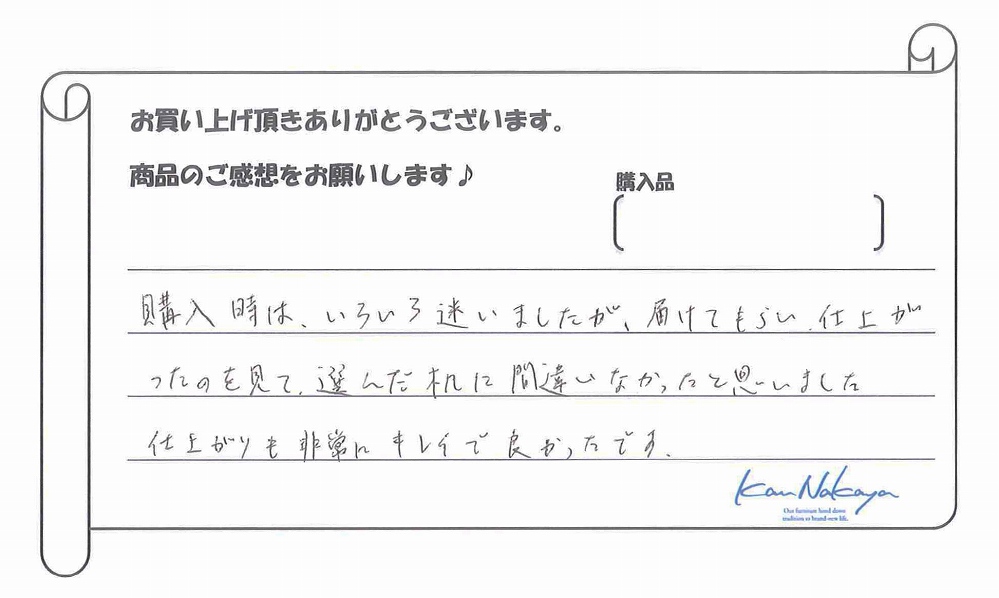 お買い上げ頂きありがとうございます。
商品のご感想をお願いします♪
購入品
購入時は、いろいろ迷いましたが、届けてもらい、仕上が
ったのを見て、選んだ机に間違いなかったと思いました
仕上がりも非常にキレイで良かったです。
Kan Nakaya
Our furniture hand down
tradition to brand-new life.